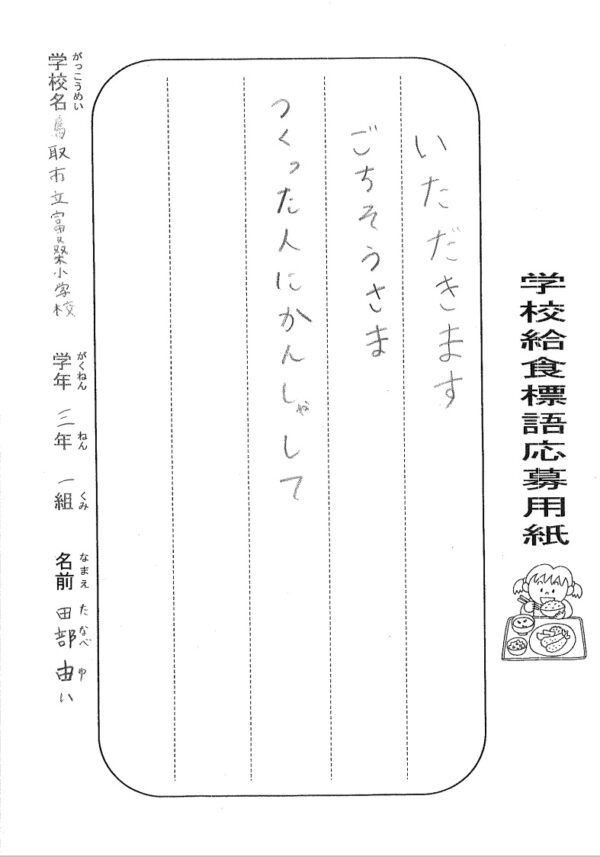 学校給食標語応募用紙
いただきます
ごちそうさま
つくった人にかんしゃして
学校名 鳥取市立富桑小学校
がっこうめい
学年 三年 一組
がくねん ねん くみ
名前 田部由い
なまえ たなべ ゆ